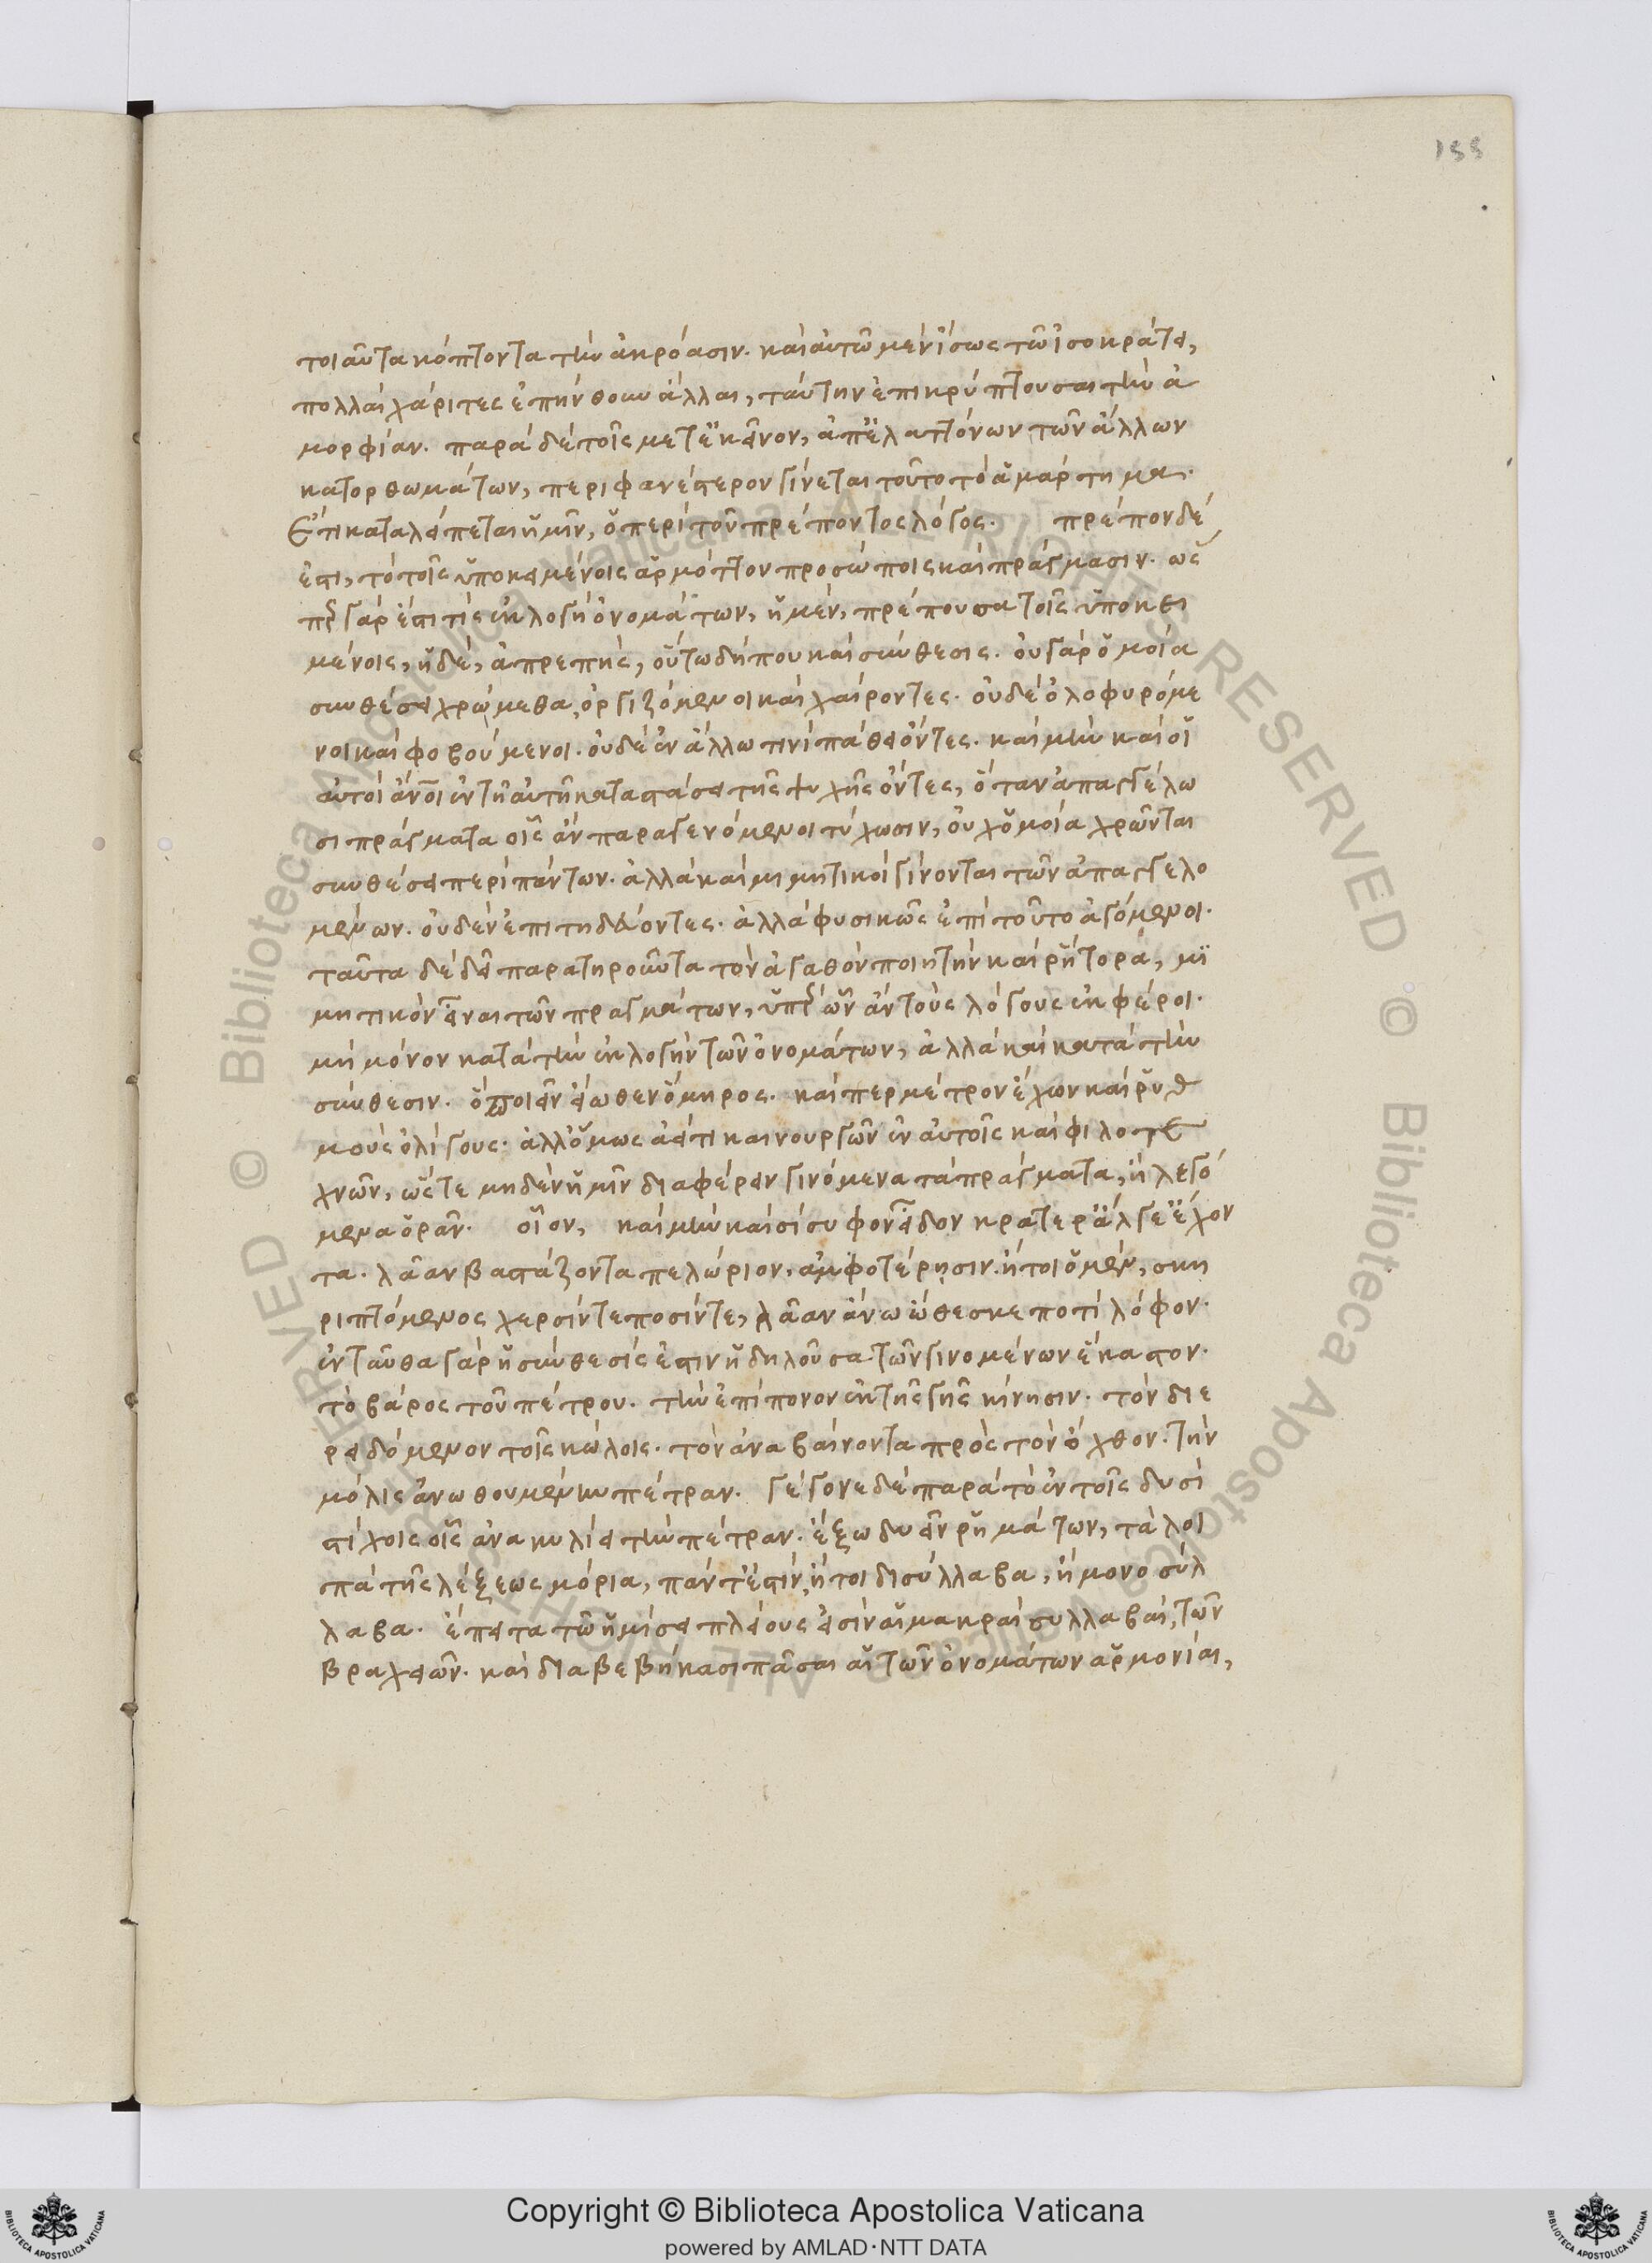 155
τοιαῦτα κόπτοντα τὴν ἀκρόασιν. καὶ αὐτῶ μὲν ἴσως τῶ ἰσοκράτει,
πολλαὶ χάριτες ἐπήνθουν ἄλλαι, ταύτην ἐπικρύπτουσαι τὴν ἀ
μορφίαν. παρὰ δὲ τοῖς μετ' ἐκεῖνον, ἀπ' ἐλαττόνων τῶν ἄλλων
κατορθωμάτων, περιφανέστερον γίνεται τοῦτο τὸ ἁμάρτημα.
Ἔτι καταλείπεται ἡμῖν, ὁ περὶ τοῦ πρέποντος λόγος. πρέπον δέ
ἐστι, τὸ τοῖς ὑποκειμένοις ἁρμόττον προσώποις καὶ πράγμασιν. ὥσ
περ γάρ ἐστι τίς ἐκλογὴ ὀνομάτων, ἡ μὲν, πρέπουσα τοῖς ὑποκει
μένοις, ἡ δὲ, ἀπρεπὴς, οὕτω δήπου καὶ σύνθεσις. οὐ γὰρ ὁμοία
συνθέσει χρώμεθα, ὀργιζόμενοι καὶ χαίροντες. οὐδὲ ὀλοφυρόμε
νοι καὶ φοβούμενοι. οὐδὲ ἐν ἄλλω τινὶ πάθει ὄντες. καὶ μὴν καὶ οἱ
αὐτοὶ ἄνοι ἐν τῆ αὐτῆ καταστάσει τῆς ψυχῆς ὄντες, ὅταν ἀπαγγέλω
σι πράγματα οἷς ἂν παραγενόμενοι τύχωσιν, οὐχ ὁμοία χρῶνται
συνθέσει περὶ πάντων. ἀλλὰ καὶ μιμητικοὶ γίνονται τῶν ἀπαγγελο
μένων. οὐδὲν ἐπιτηδεύοντες. ἀλλὰ φυσικῶς ἐπὶ τοῦτο ἀγόμενοι.
ταῦτα δὲ δεῖ παρατηροῦντα τὸν ἀγαθὸν ποιητὴν καὶ ῥήτορα, μι
μητικὸν εἶναι τῶν πραγμάτων, ὑπὲρ ὧν ἂν τοὺς λόγους ἐκφέροι.
μὴ μόνον κατὰ τὴν ἐκλογὴν τῶν ὀνομάτων, ἀλλὰ καὶ κατὰ τὴν
σύνθεσιν. ὃ ποιεῖν εἴωθεν ὅμηρος. καίπερ μέτρον ἔχων καὶ ῥυθ
μοὺς ὀλίγους. ἀλλ' ὅμως ἀεί τι καινουργῶν ἐν αὐτοῖς καὶ φιλοτε
χνῶν, ὥστε μηδὲν ἡμῖν διαφέρειν γινόμενα τὰ πράγματα, ἢ λεγό
μενα ὁρᾶν. οἷον, καὶ μὴν καὶ σίσυφον εἶδον κρατερ' ἄλγε' ἔχον
τα. λᾶαν βαστάζοντα πελώριον, ἀμφοτέρησιν. ἤτοι ὁ μὲν, σκη
ριπτόμενος χερσίν τε ποσίν τε, λᾶαν ἄνω ὤθεσκε ποτὶ λόφον.
ἐνταῦθα γὰρ ἡ σύνθεσίς ἐστιν ἡ δηλοῦσα τῶν γινομένων ἕκαστον.
τὸ βάρος τοῦ πέτρου. τὴν ἐπίπονον ἐκ τῆς γῆς κίνησιν. τὸν διε
ρειδόμενον τοῖς κώλοις. τὸν ἀναβαίνοντα πρὸς τὸν ὄχθον. τὴν
μόλις ἀνωθουμένην πέτραν. γέγονε δὲ παρὰ τὸ ἐν τοῖς δυσὶ
στίχοις οἷς ἀνακυλίει τὴν πέτραν. ἔξω δυεῖν ῥημάτων, τὰ λοι
πὰ τῆς λέξεως μόρια, πάντ' ἐστὶν, ἤτοι δισύλλαβα, ἢ μονοσύλ
λαβα. ἔπειτα τῶ ἡμίσει πλείους εἰσὶν αἱ μακραὶ συλλαβαὶ, τῶν
βραχειῶν. καὶ διαβεβήκασι πᾶσαι αἱ τῶν ὀνομάτων ἁρμονίαι,
© Biblioteca Apostolica Vaticana ALL RIGHTS RESERVED © Biblioteca Apostolica Vaticana ALL RIGHTS RESERVED
Copyright © Biblioteca Apostolica Vaticana
powered by AMLAD·NTT DATA
BIBLIOTECA APOSTOLICA VATICANA
BIBLIOTECA APOSTOLICA VATICANA